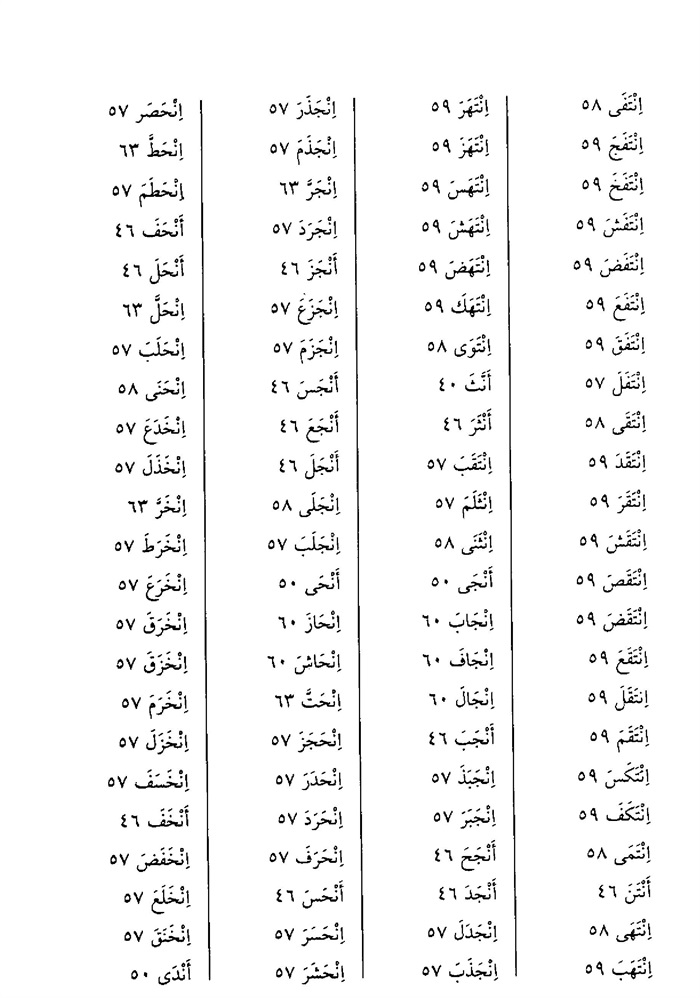 اِنْتَفَى ٥٨
اِنْتَفَجَ ٥٩
اِنْتَفَخَ ٥٩
اِنْتَفَشَ ٥٩
اِنْتَفَضَ ٥٩
اِنْتَفَعَ ٥٩
اِنْتَفَقَ ٥٩
اِنْتَفَلَ ٥٧
اِنْتَقَى ٥٨
اِنْتَقَدَ ٥٩
اِنْتَقَرَ ٥٩
اِنْتَقَشَ ٥٩
اِنْتَقَصَ ٥٩
اِنْتَقَضَ ٥٩
اِنْتَقَعَ ٥٩
اِنتَقَلَ ٥٩
اِنْتَقَمَ ٥٩
اِنْتَكَسَ ٥٩
اِنْتَكَفَ ٥٩
اِنْتَمَى ٥٨
أَنْتَنَ ٤٦
اِنْتَهَى ٥٨
اِنْتَهَبَ ٥٩
اِنْتَهَرَ ٥٩
اِنْتَهَزَ ٥٩
اِنْتَهَسَ ٥٩
اِنْتَهَشَ ٥٩
اِنْتَهَضَ ٥٩
اِنْتَهَكَ ٥٩
اِنْتَوَى ٥٨
أَنَّثَ ٤٠
أَنْثَرَ ٤٦
اِنْثَقَبَ ٥٧
اِنْثَلَمَ ٥٧
اِنْثَنَى ٥٨
أَنْجَى ٥٠
اِنْجَابَ ٦٠
اِنْجَافَ ٦٠
اِنْجَالَ ٦٠
أَنْجَبَ ٤٦
اِنْجَبَذَ ٥٧
اِنْجَبَرَ ٥٧
أَنْجَحَ ٤٦
أَنْجَدَ ٤٦
اِنْجَدَلَ ٥٧
اِنْجَذَبَ ٥٧
اِنْجَذَرَ ٥٧
اِنْجَذَمَ ٥٧
اِنْجَرَّ ٦٣
اِنْجَرَدَ ٥٧
أَنْجَزَ ٤٦
اِنْجَزَعَ ٥٧
اِنْجَزَمَ ٥٧
أَنْجَسَ ٤٦
أَنْجَعَ ٤٦
أَنْجَلَ ٤٦
اِنْجَلَى ٥٨
اِنْجَلَبَ ٥٧
أَنْحَى ٥٠
اِنْحَازَ ٦٠
اِنْحَاشَ ٦٠
اِنْحَتَّ ٦٣
اِنْحَجَزَ ٥٧
اِنْحَدَرَ ٥٧
اِنْحَرَدَ ٥٧
اِنْحَرَفَ ٥٧
أَنْحَسَ ٤٦
اِنْحَسَرَ ٥٧
اِنْحَشَرَ ٥٧
اِنْحَصَر ٥٧
اِنْحَطَّ ٦٣
اِنْحَطَمَ ٥٧
أَنْحَفَ ٤٦
أَنْحَلَ ٤٦
اِنْحَلَّ ٦٣
اِنْحَلَبَ ٥٧
اِنْحَنَى ٥٨
اِنْخَدَعَ ٥٧
اِنْخَذَلَ ٥٧
اِنْخَرَّ ٦٣
اِنْخَرَطَ ٥٧
اِنْخَرَعَ ٥٧
اِنْخَرَقَ ٥٧
اِنْخَزَقَ ٥٧
اِنْخَرَمَ ٥٧
اِنْخَزَلَ ٥٧
اِنْخَسَفَ ٥٧
أَنْخَفَ ٤٦
اِنْخَفَضَ ٥٧
اِنْخَلَعَ ٥٧
اِنْخَنَقَ ٥٧
أَنْدَى ٥٠